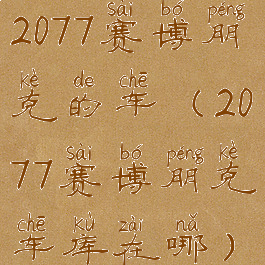 sài bó péng
2077赛博朋
kè de chē
克的车（20
sài bó péng kè
77赛博朋克
chē kù zài nǎ
车库在哪）